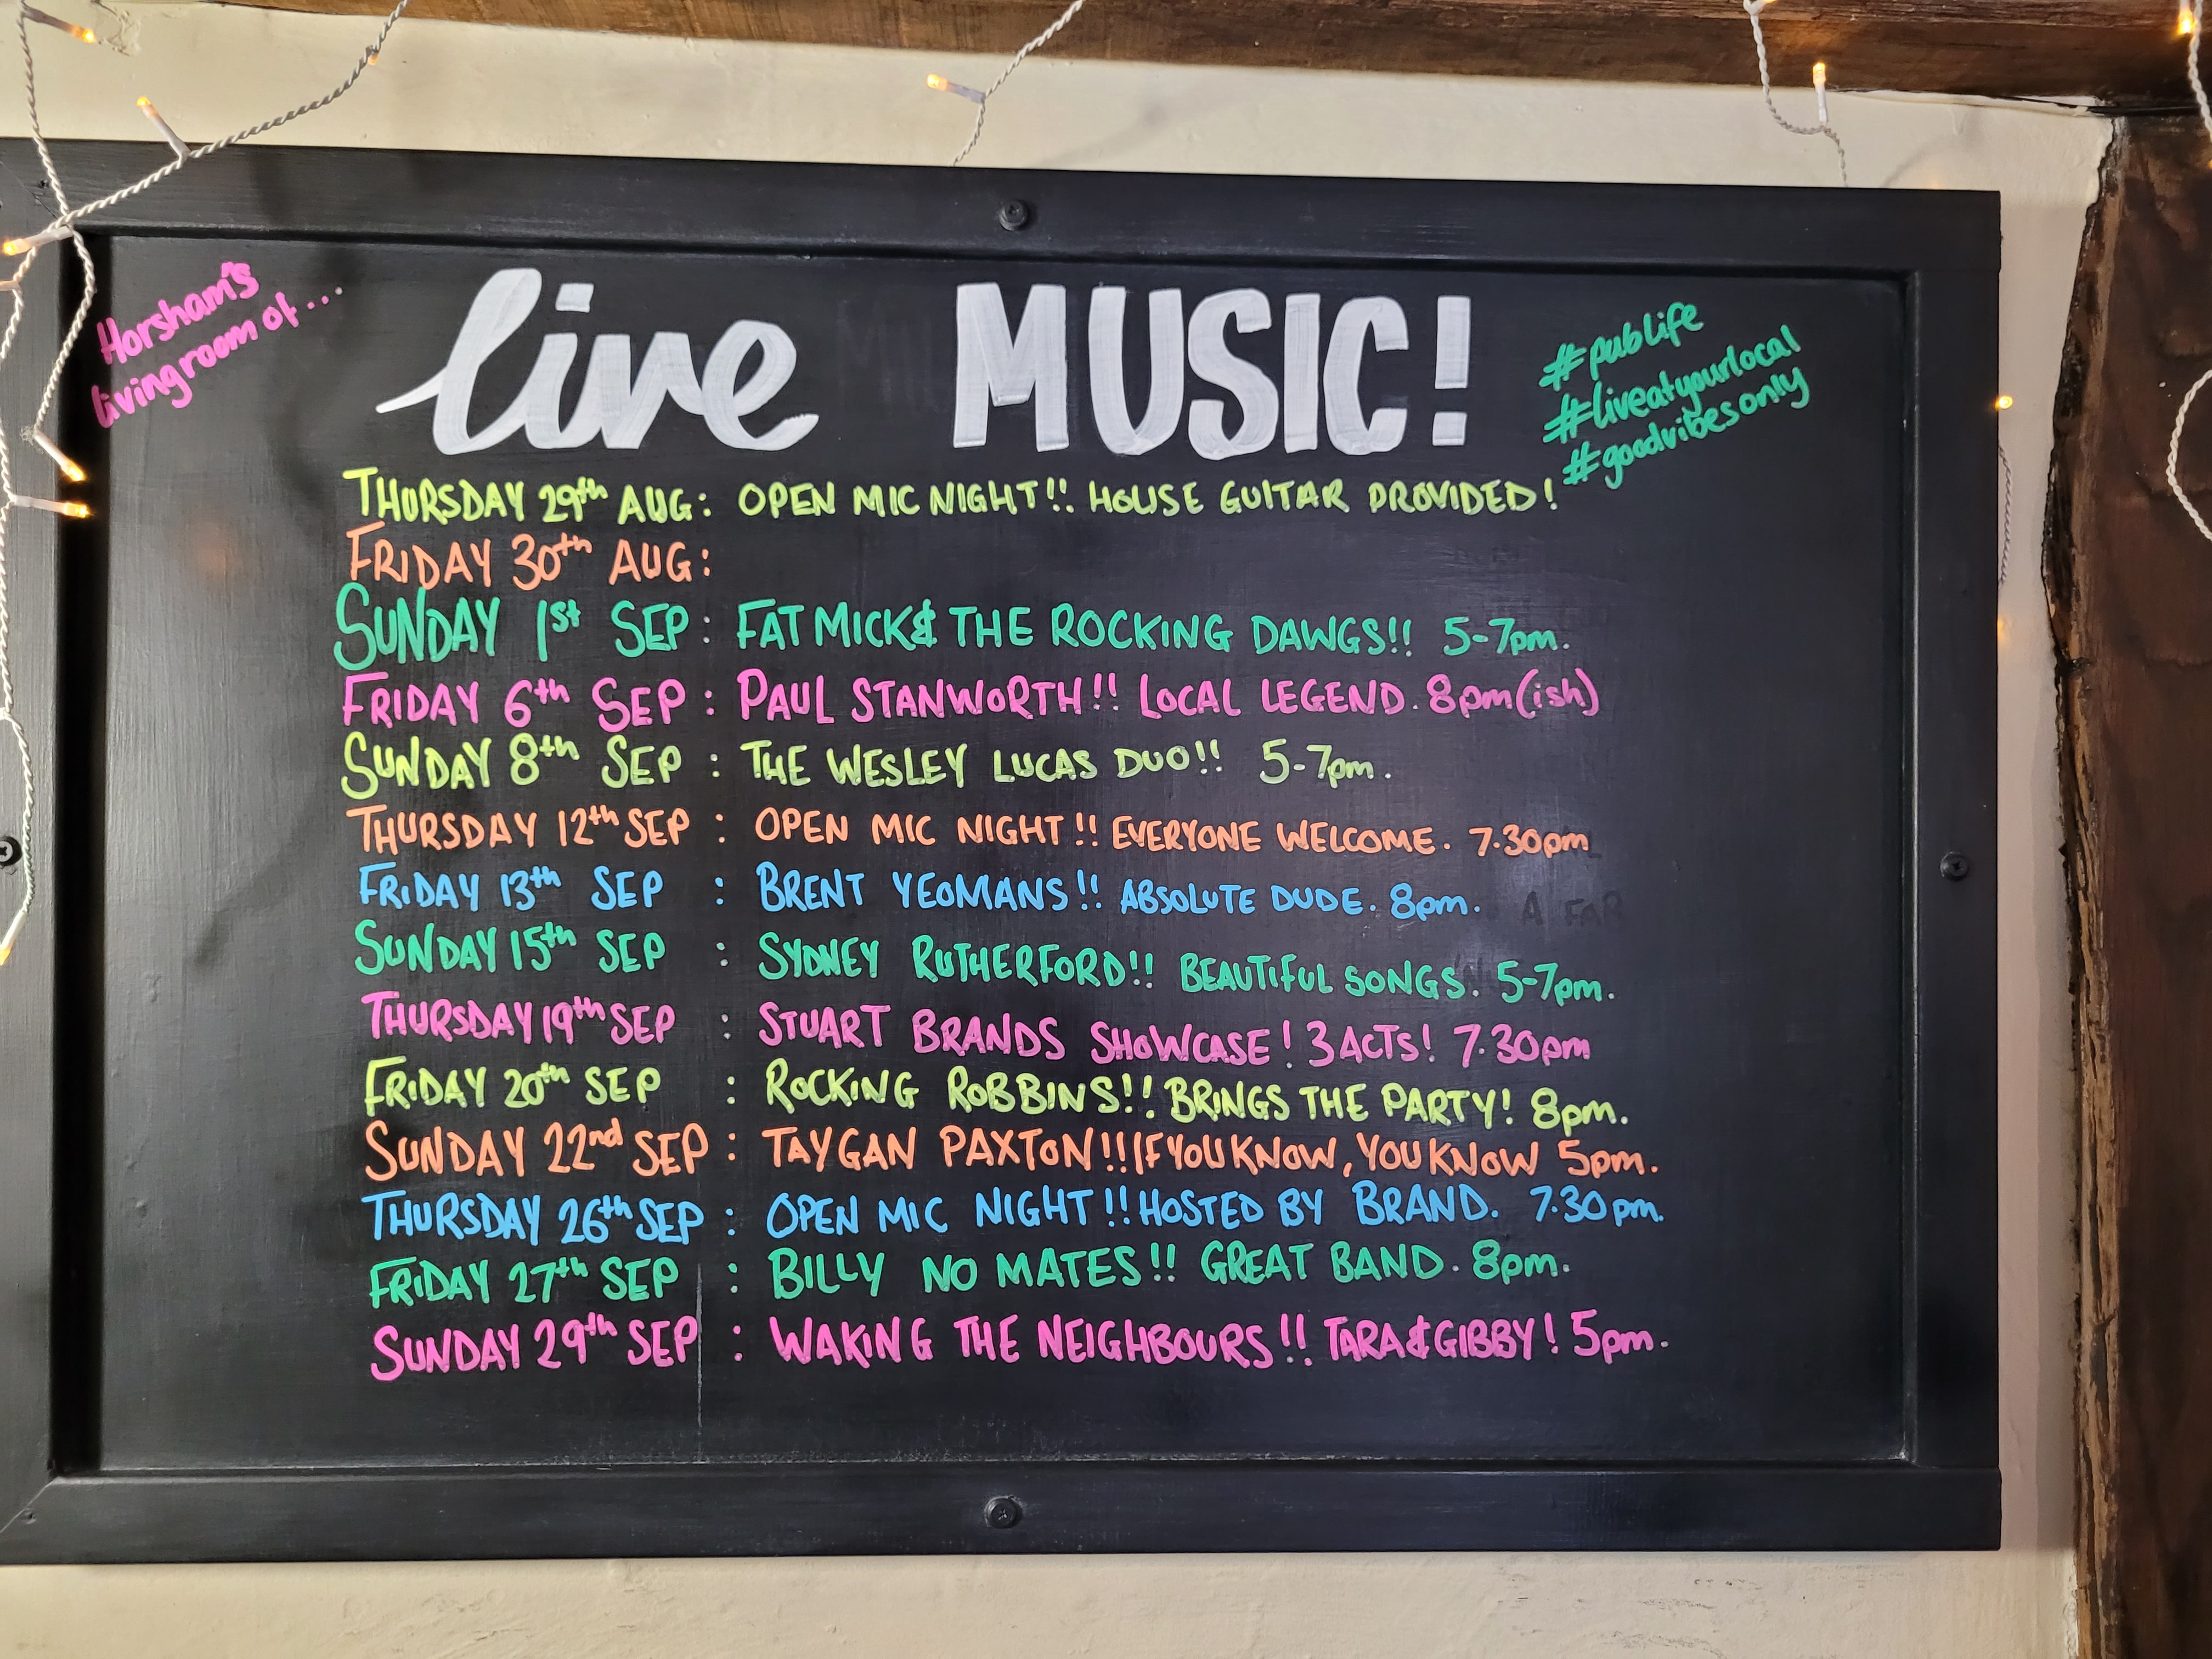 Horsham's
living room of...
live MUSIC!
#publife
#liveatyourlocal
#goodvibesonly
THURSDAY 29th AUG: OPEN MIC NIGHT!! HOUSE GUITAR PROVIDED!
FRIDAY 30th AUG:
SUNDAY 1st SEP: FAT MICK & THE ROCKING DAWGS!! 5-7pm.
FRIDAY 6th SEP: PAUL STANWORTH!! LOCAL LEGEND. 8pm(ish)
SUNDAY 8th SEP: THE WESLEY LUCAS DUO!! 5-7pm.
THURSDAY 12th SEP: OPEN MIC NIGHT!! EVERYONE WELCOME. 7.30pm
FRIDAY 13th SEP: BRENT YEOMANS!! ABSOLUTE DUDE. 8pm.
SUNDAY 15th SEP: SYDNEY RUTHERFORD!! BEAUTIFUL SONGS. 5-7pm.
THURSDAY 19th SEP: STUART BRANDS SHOWCASE! 3 ACTS! 7.30pm
FRIDAY 20th SEP: ROCKING ROBBINS!! BRINGS THE PARTY! 8pm.
SUNDAY 22nd SEP: TAYGAN PAXTON!! IF YOU KNOW, YOU KNOW 5pm.
THURSDAY 26th SEP: OPEN MIC NIGHT!! HOSTED BY BRAND. 7.30pm.
FRIDAY 27th SEP: BILLY NO MATES!! GREAT BAND. 8pm.
SUNDAY 29th SEP: WAKING THE NEIGHBOURS!! TARA & GIBBY! 5pm.